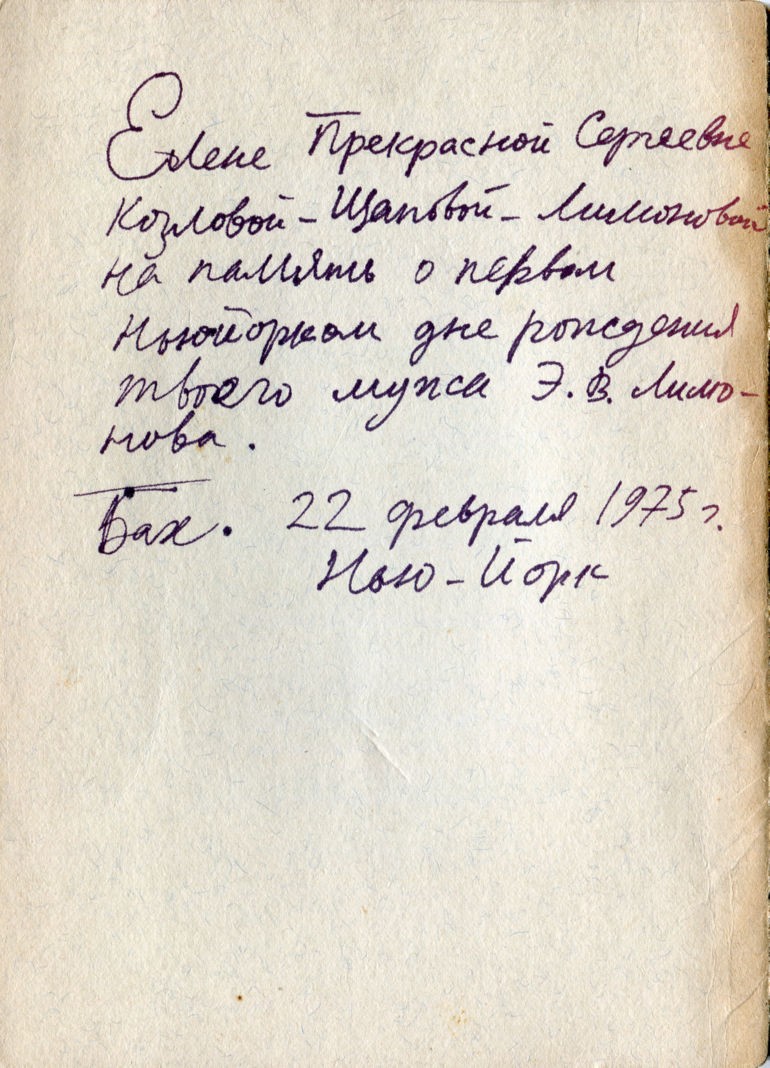 Елене Прекрасной Сергеевне
Козловой-Щаповой-Лимоновой
на память о первом
Ньюйорком дне рождения
твоего мужа Э.В. Лимо-
нова.
Бах. 22 февраля 1975 г.
Нью-Йорк